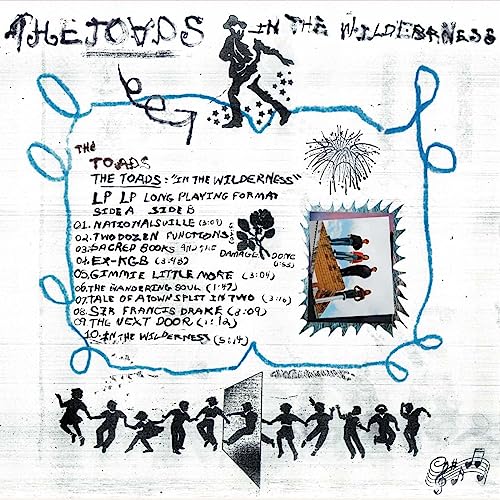 THE TOADS IN THE WILDERNESS
THE
TOADS
THE TOADS: "IN THE WILDERNESS"
LP LP LONG PLAYING FORMAT
SIDE A SIDE B
01. NATIONALSVILLE
02. TWO DOZEN FUNCTIONS
03. SACRED BOOKS AND THE DAMAGE DONE
04. EX-KGB (3:48)
05. GIMMIE LITTLE MORE (3:04)
06. THE WANDERING SOUL (1:47)
07. TALE OF A TOWN SPLIT IN TWO
08. SIR FRANCIS DRAKE (3:09)
09. THE NEXT DOOR (1:12)
10. IN THE WILDERNESS (5:14)